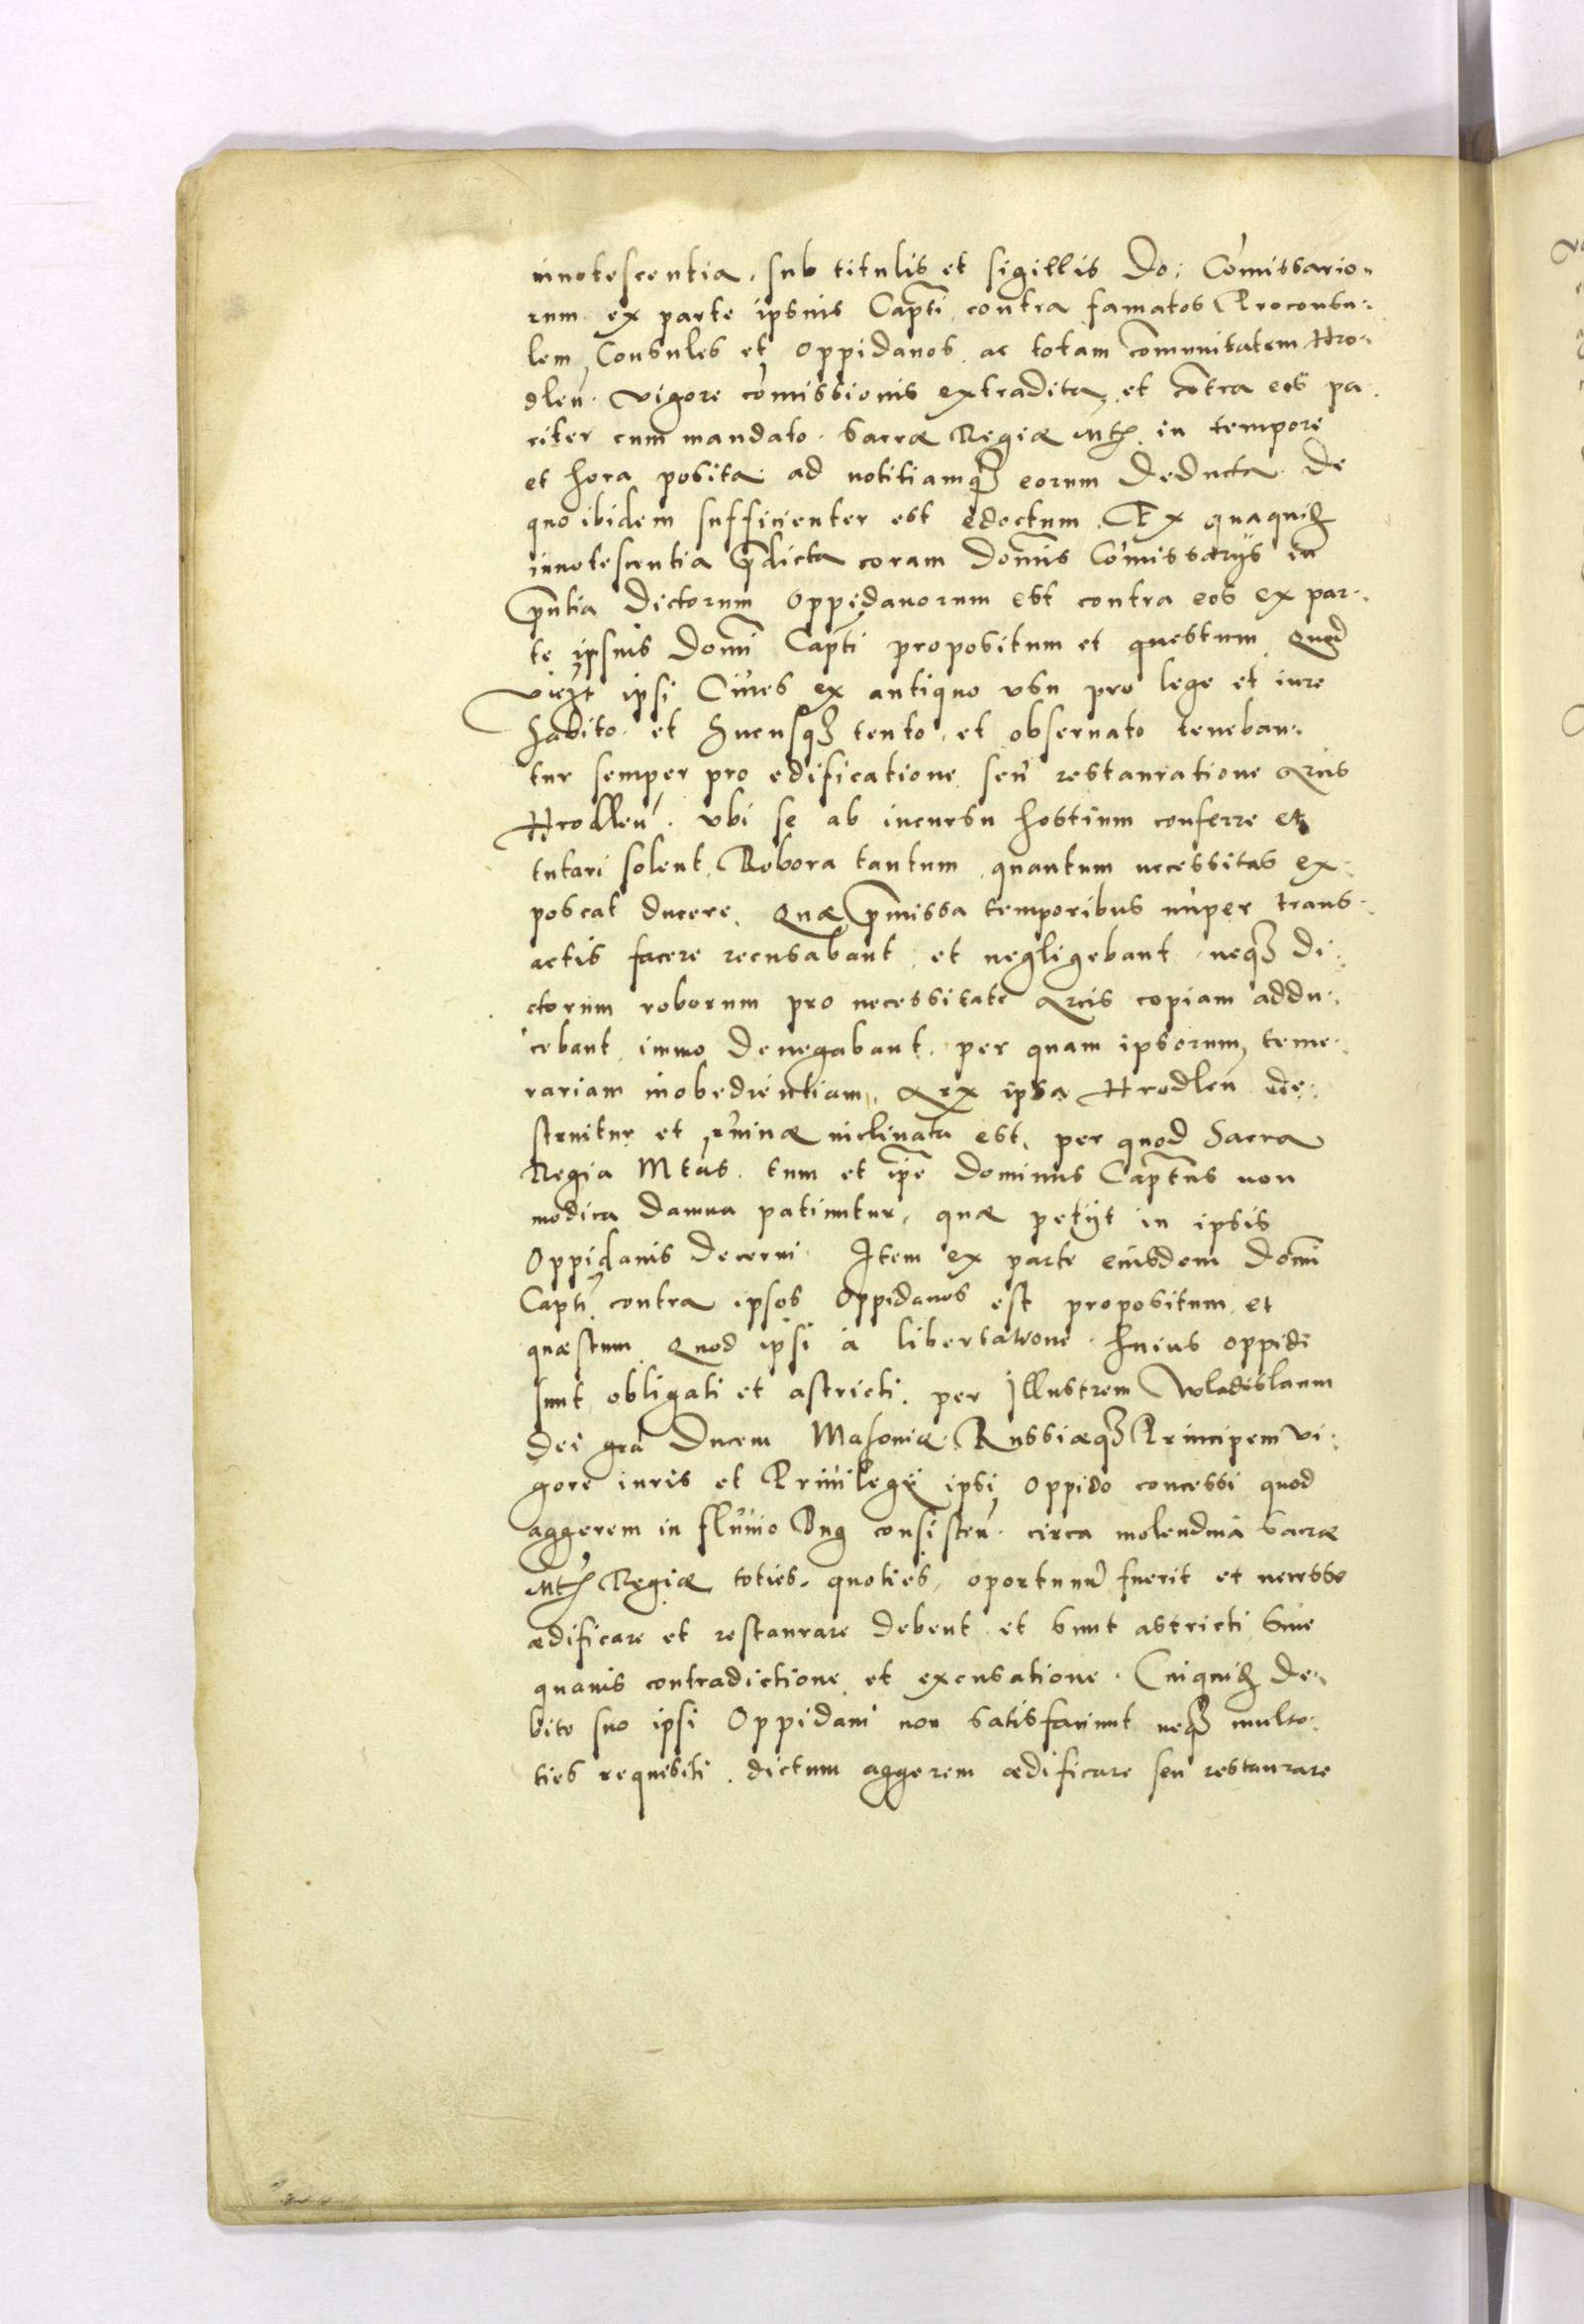 innotescentia, sub titulis et sigillis Do: Comissario-
rum ex parte ipsius Capti contra famatos Proconsu-
lem, Consules et Oppidanos ac totam comunitatem Hro-
dlen̄. vigore comissionis extradita, et contra eos pa-
riter cum mandato Sacræ Regiæ Mtis in tempore
et hora posita ad notitiamq3 eorum deducta. De
quo ibidem sufficienter est edoctum. Ex quaquid
innotescentia p̄dicta coram Dominis Comissarijs in
p̄ntia dictorum Oppidanorum est contra eos ex par-
te ipsius Domi Capti propositum et questum. Quod
vicz ipsi Ciues ex antiquo vsu pro lege et iure
habito et hucusq3 tento, et obseruato teneban-
tur semper pro edificatione seu restauratione Arcis
Hrodlen̄. vbi se ab incursu hostium conferre et
tutari solent, Robora tantum quantum necessitas ex-
poscat ducere. Quæ p̄missa temporibus nuper trans-
actis facere recusabant et negligebant neq3 di-
ctorum roborum pro necessitate Arcis copiam addu-
cebant immo denegabant, per quam ipsorum teme-
rariam inobedientiam, Arx ipsa Hrodlen̄ de-
struitur et ruinæ inclinata est, per quod Sacra
Regia Mtas. tum et ipe Dominus Captus non
modica damna patiuntur, quæ petijt in ipsis
Oppidanis decerni. Item ex parte eiusdem Domi
Capti contra ipsos Oppidanos est propositum et
quæstum Quod ipsi a libertatione huius oppidi
sunt obligati et astricti, per Illustrem Wladislaum
Dei gra Ducem Masoniæ Russiæq3 Principem vi-
gore iuris et Priuilegij ipsi oppido concessi quod
aggerem in fluuio Bug consisten̄. circa molendina Sacræ
Mtis Regiæ toties, quoties, oportunū fuerit et necesse
ædificare et restaurare debent et sunt astricti sine
quauis contradictione et excusatione. Cuiquid de-
bito suo ipsi Oppidani non satisfaciunt neq3 multo-
ties requisiti, dictum aggerem ædificare seu restaurare